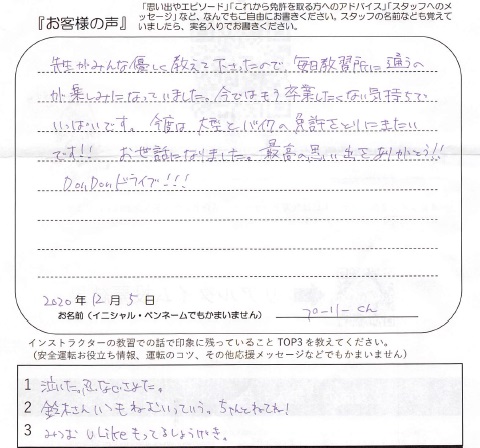 『お客様の声』
「思い出やエピソード」「これから免許を取る方へのアドバイス」「スタッフへのメ
ッセージ」など、なんでもご自由にお書きください。スタッフの名前なども覚えて
いましたら、実名入りでお書きください。
先生がみんな優しく教えて下さったので、毎日教習所に通うの
が楽しみになっていました。今ではもう卒業したくない気持ちで
いっぱいです。今度は大型とバイクの免許をとりにきたい
です!! お世話になりました。最高の思い出をありがとう!!
DonDonドライブ!!!
2020年12月5日
お名前(イニシャル・ペンネームでもかまいません) フローリーくん
インストラクターの教習での話で印象に残っていること TOP3を教えてください。
(安全運転お役立ち情報、運転のコツ、その他応援メッセージなどでもかまいません)
1 泣いた。
2 鈴木さんいつもねむいっていう。ちゃんとねてね!
3 u Likeもってるしょうげき。